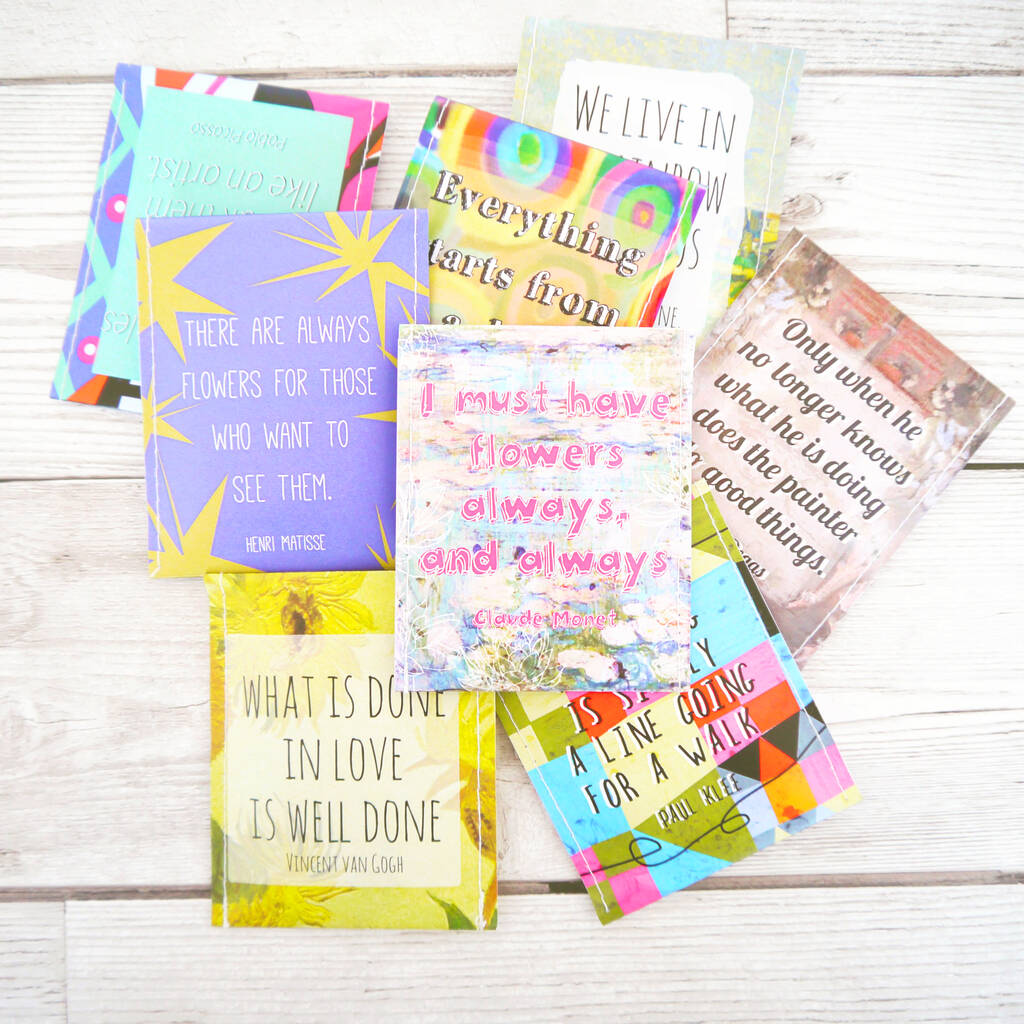 them
like an artist.
Pablo Picasso
WE LIVE IN
Everything
from
THERE ARE ALWAYS
FLOWERS FOR THOSE
WHO WANT TO
SEE THEM.
HENRI MATISSE
I must have
flowers
always,
and always
Claude Monet
Only when he
no longer knows
what he is doing
does the painter
good things.
WHAT IS DONE
IN LOVE
IS WELL DONE
VINCENT VAN GOGH
IS
A LINE GOING
FOR A WALK
PAUL KLEE